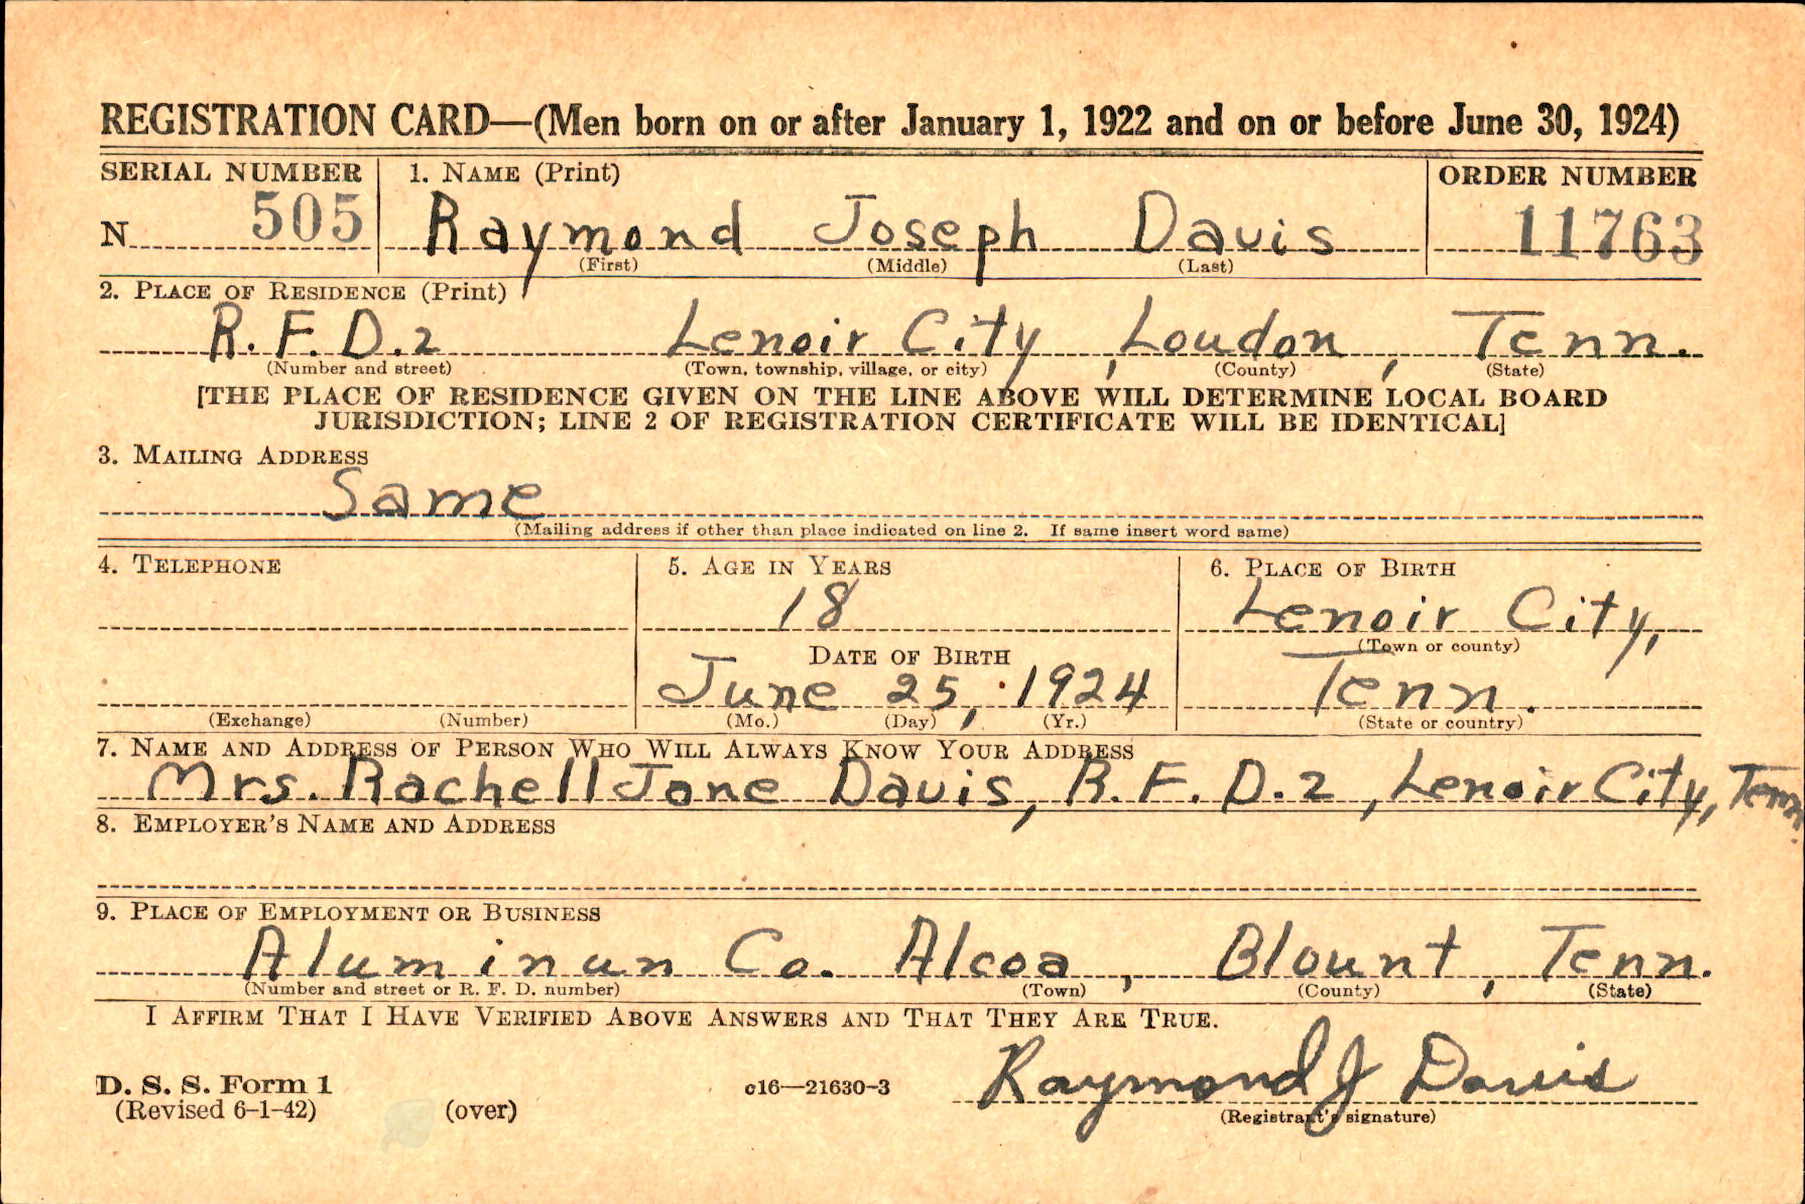 REGISTRATION CARD—(Men born on or after January 1, 1922 and on or before June 30, 1924)
SERIAL NUMBER 1. NAME (Print) ORDER NUMBER
N 505 Raymond Joseph Davis 11763
(First) (Middle) (Last)
2. PLACE OF RESIDENCE (Print)
R.F.D.2 Lenoir City, Loudon, Tenn.
(Number and street) (Town, township, village, or city) (County) (State)
[THE PLACE OF RESIDENCE GIVEN ON THE LINE ABOVE WILL DETERMINE LOCAL BOARD
JURISDICTION; LINE 2 OF REGISTRATION CERTIFICATE WILL BE IDENTICAL]
3. MAILING ADDRESS
Same
(Mailing address if other than place indicated on line 2. If same insert word same)
4. TELEPHONE 5. AGE IN YEARS 6. PLACE OF BIRTH
18 Lenoir City,
DATE OF BIRTH (Town or county)
June 25, 1924 Tenn.
(Exchange) (Number) (Mo.) (Day) (Yr.) (State or country)
7. NAME AND ADDRESS OF PERSON WHO WILL ALWAYS KNOW YOUR ADDRESS
Mrs. Rachell Jane Davis, R.F.D.2, Lenoir City, Tenn.
8. EMPLOYER'S NAME AND ADDRESS
9. PLACE OF EMPLOYMENT OR BUSINESS
Aluminun Co. Alcoa, Blount, Tenn.
(Number and street or R. F. D. number) (Town) (County) (State)
I AFFIRM THAT I HAVE VERIFIED ABOVE ANSWERS AND THAT THEY ARE TRUE.
Raymond J Davis
D. S. S. Form 1 c16—21630-3
(Revised 6-1-42) (over) (Registrant's signature)